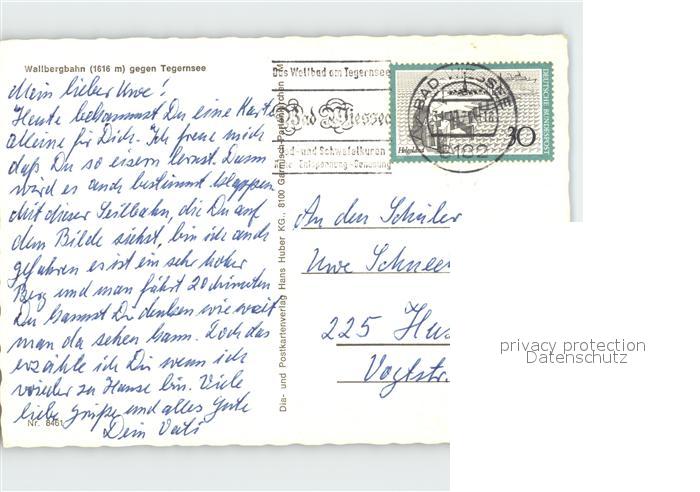 Wallbergbahn (1616 m) gegen Tegernsee
Mein lieber Uwe!
Heute bekommst Du eine Karte
alleine für Dich. Ich freue mich
daß Du so eisern lernst. Dann
wird es auch bestimmt klappen.
Mit dieser Seilbahn, die Du auf
dem Bilde siehst, bin ich auch
gefahren es ist ein sehr hoher
Berg und man fährt 20 Minuten
Du kannst Dir denken wie weit
man da sehen kann. Doch das
erzähle ich Dir wenn ich
wieder zu Hause bin. Viele
liebe Grüße und alles Gute
Dein Vati
Nr. 8461
Dia- und Postkartenverlag Hans Huber KG., 8100 Garmisch-Partenkirchen
Das Weltbad am Tegernsee
Bad Wiessee
und Schwefelkuren
Entspannung - Genesung
BAD WIESSEE
8182
DEUTSCHE BUNDESPOST
Helgoland
30
An den Schüler
Uwe Schnee
225 Hus
Vogtstr.
privacy protection
Datenschutz